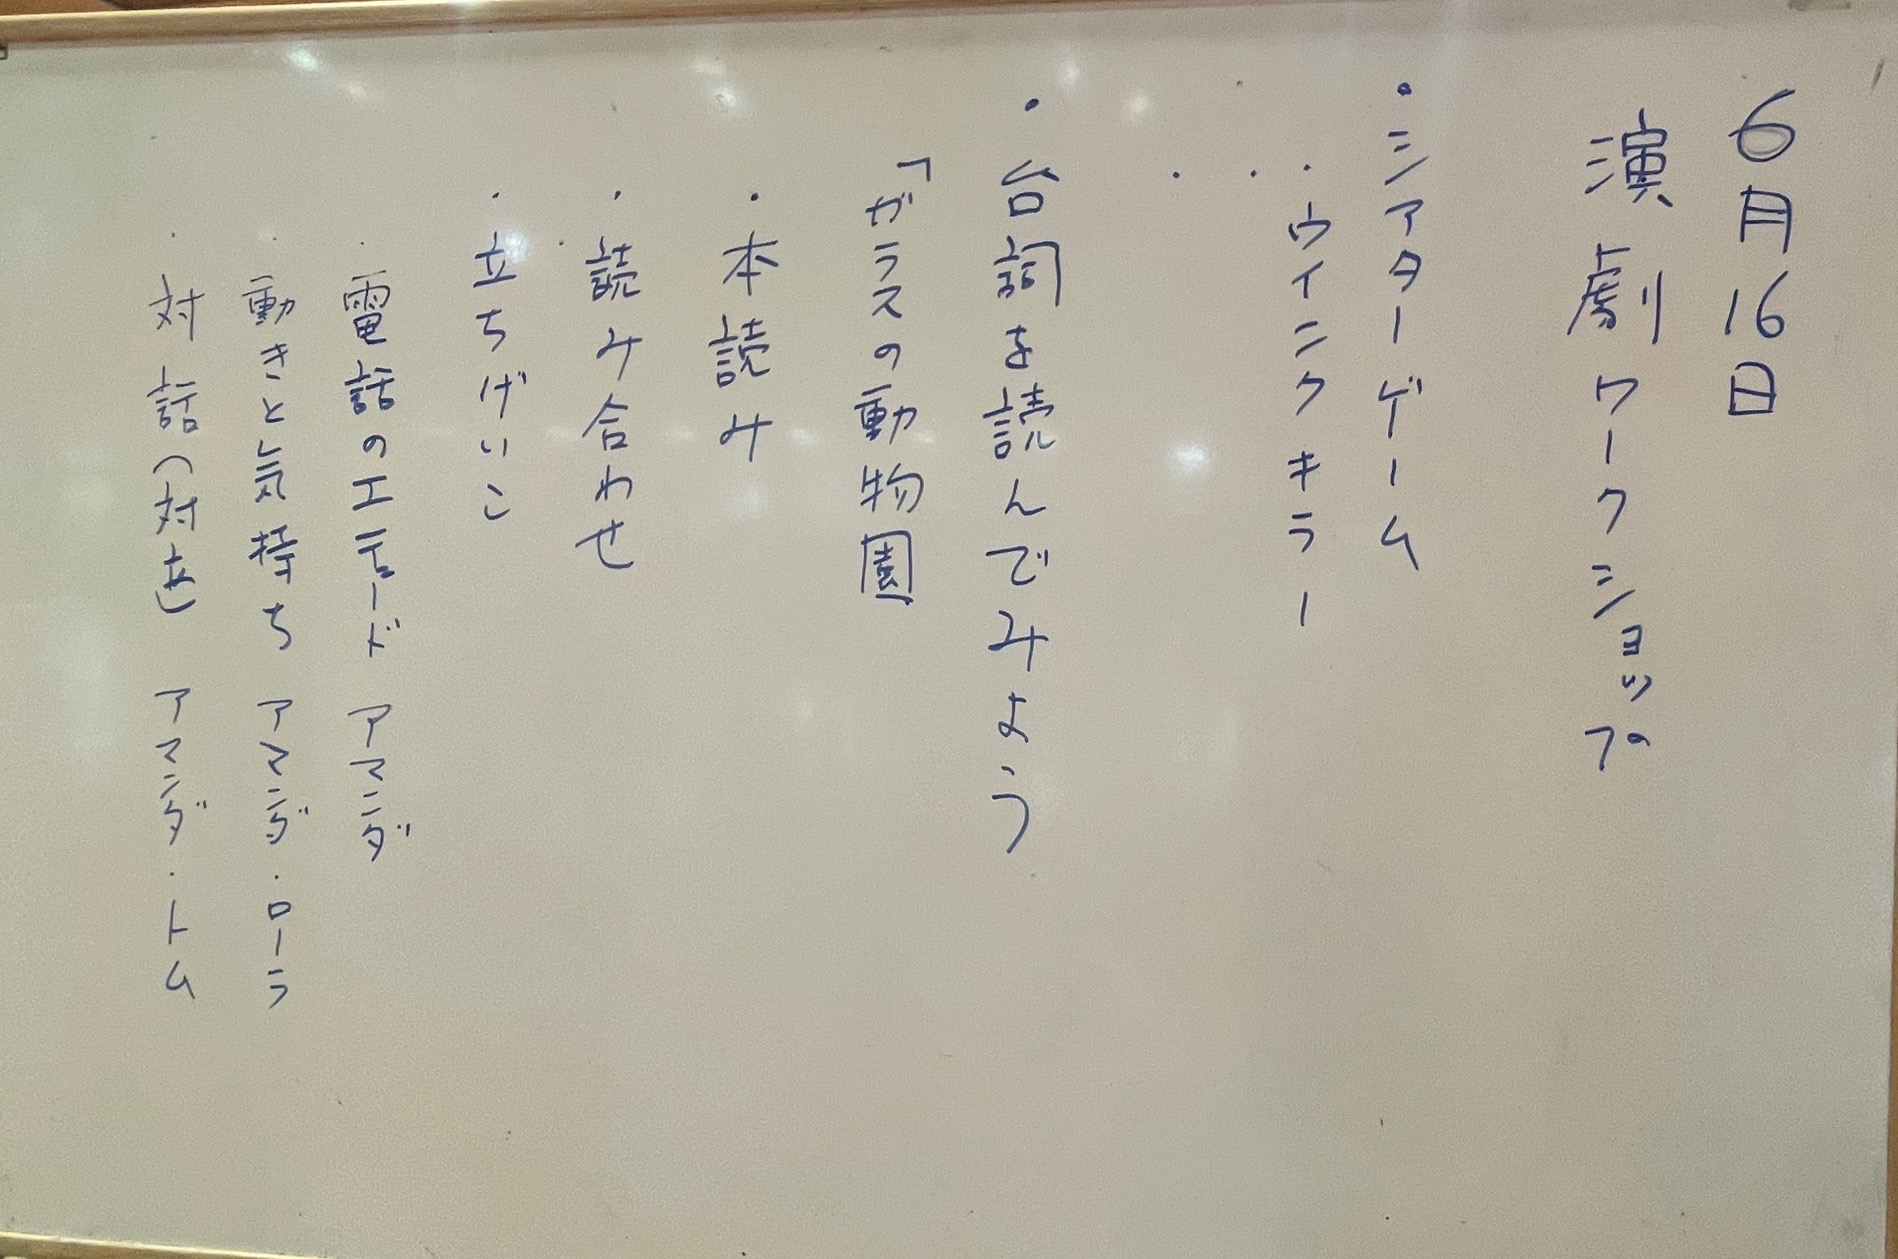 6月16日
演劇ワークショップ
・シアターゲーム
・ウインクキラー
・
・
・台詞を読んでみよう
「ガラスの動物園
・本読み
・読み合わせ
・立ちげいこ
・電話のエチュード アマンダ
・動きと気持ち アマンダ・ローラ
・対話(対立) アマンダ・トム